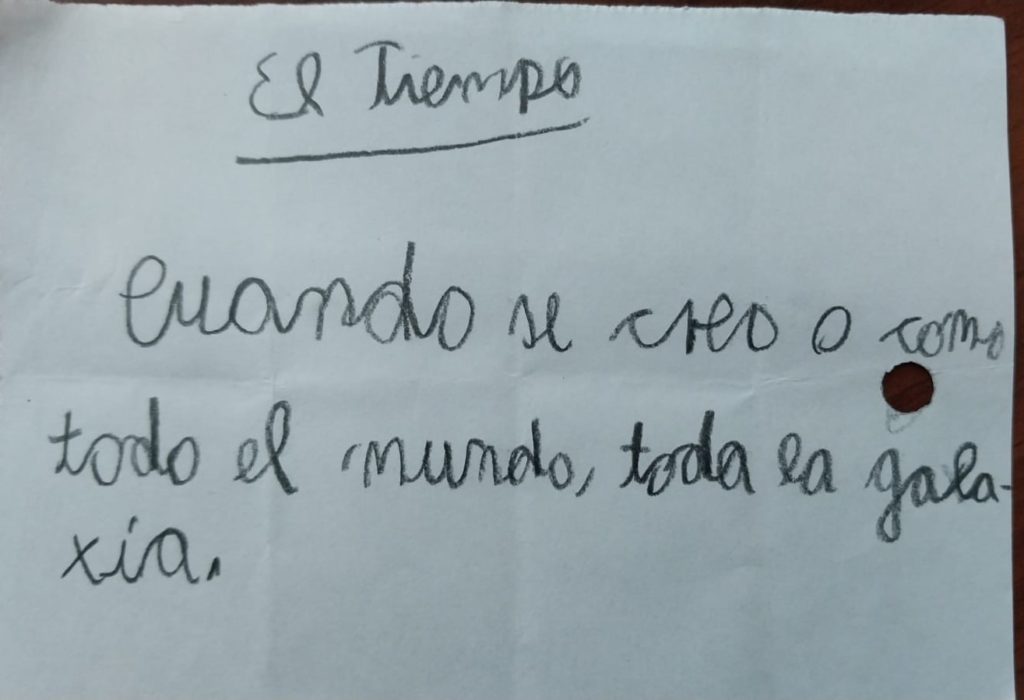 El Tiempo
Cuando se creo o como
todo el mundo, toda la gala-
xia.